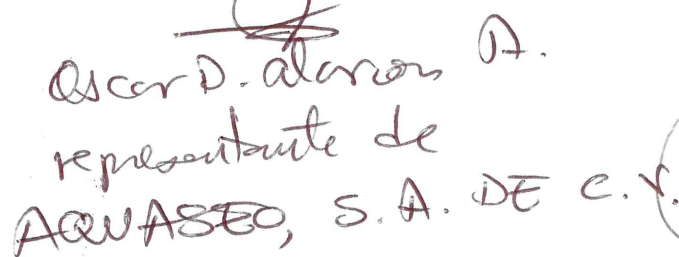 Oscar D. alarcon A.
representante de
AQUASEO, S.A. DE C.V.